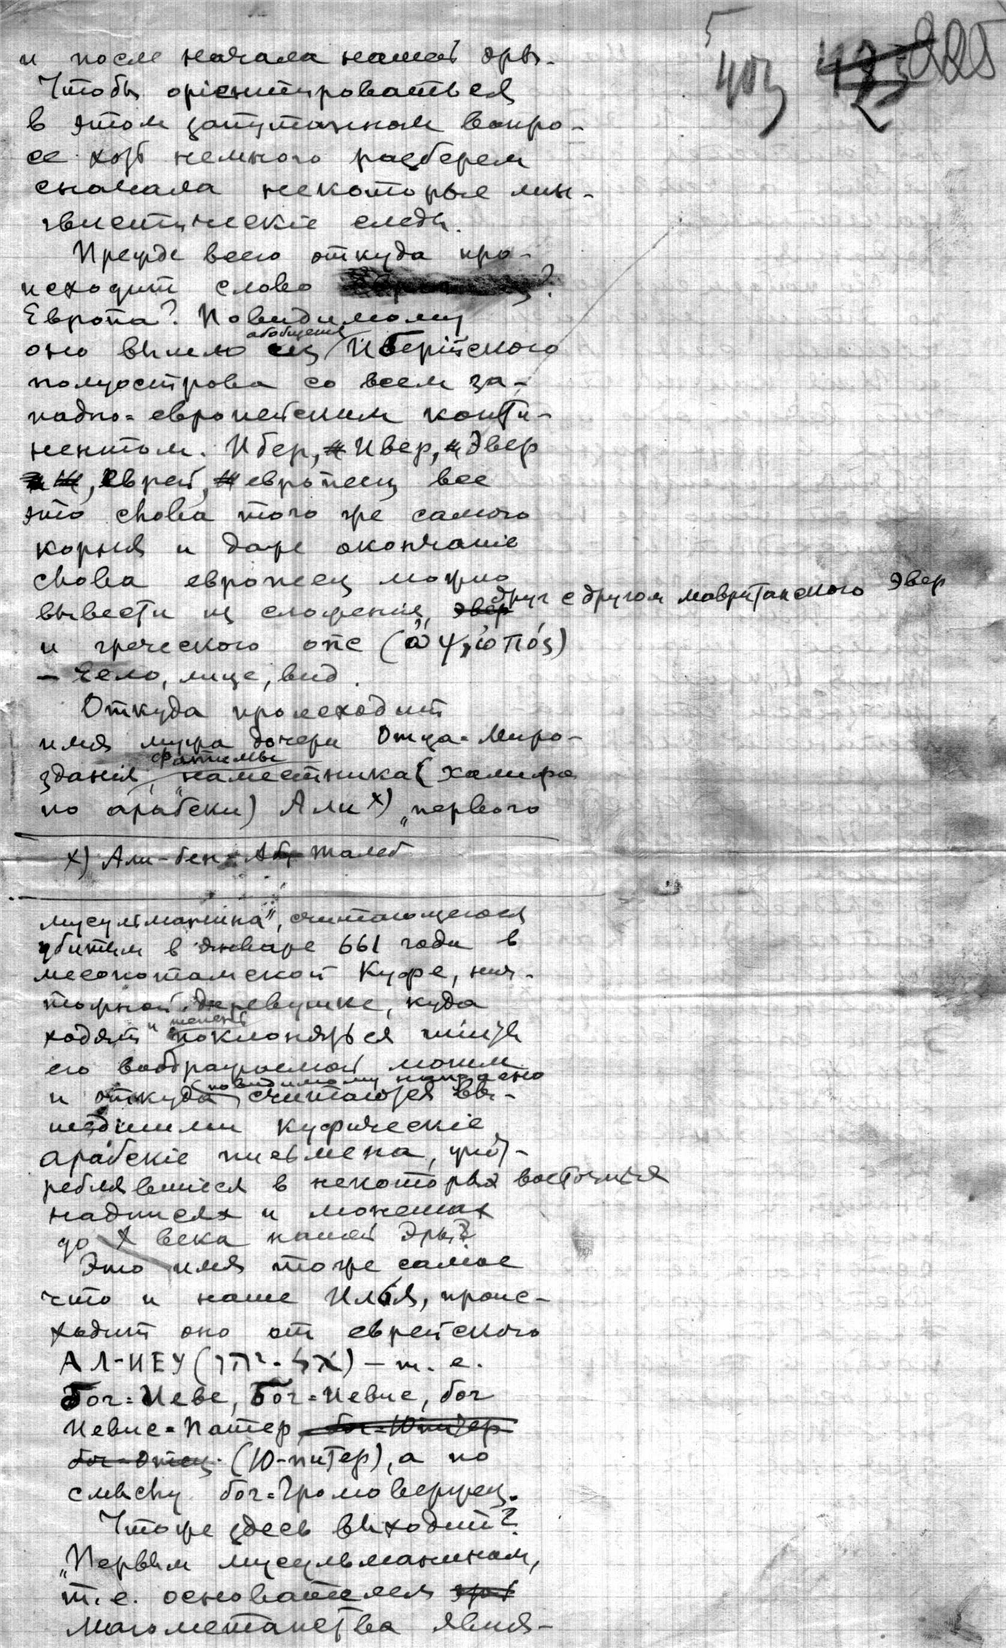 5
403
225
и после начала нашей эры.
Чтобы оріентироваться
в этом запутанном вопро-
се хоть немного разберем
сначала некоторые лин-
гвистическіе следы.
Прежде всего откуда про-
исходит слово
Европа? Повидимому
обобщения
оно вышло из Иберійского
полуострова со всем за-
падно=европейским конти-
нентом. Ибер, Ивер, Эвер
, Еврей, европеец все
это слова того же самого
корня и даже окончаніе
слова европеец можно
вывести из сложенія друг с другом мавританского Эвер
и греческого опс (ὤψ, ὠπός)
— чело, лице, вид.
Откуда происходит
имя мужа дочери Отца=Миро-
зданія Фатимы, наместника (халифа
по арабски) Али х) „первого
х) Али-бен= Аби Талеб
мусульманина", считающегося
убитым в январе 661 года в
месопотамской Куфе, ник-
тожной деревушке, куда
ходят теперь поклоняться шиіты
его воображаемой могиле
и откуда (повидимому напрасно) считаются вы-
шедшими куфическіе
арабскіе письмена, упот-
реблявшиеся в некоторых восточных
надписях и монетах
до X века нашей Эры?
Это имя тоже самое
что и наше Илья, проис-
ходит оно от еврейского
АЛ-ИЕУ (אל-יהו) — т. е.
Бог=Иеве, Бог=Иевис, бог
Иевис=Патер бог=Юпитер
бог-отец. (Ю-питер), а по
смыслу бог=Громовержец.
Чтоже здесь выходит?
„Первым мусульманином,
т.е. основателем
магометанства явля-